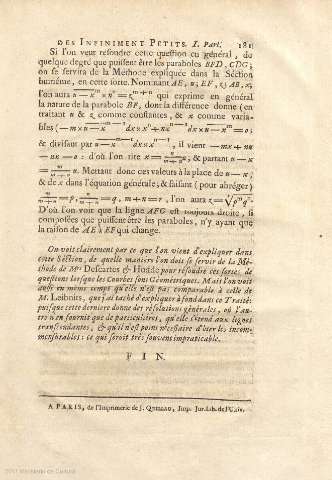 DES INFINIMENT PETITS. I. Part. 181
Si l'on veut résoudre cette question en général, de
quelque degré que puissent être les paraboles BFD, CDG;
on se servira de la Méthode expliquée dans la Section
huitiéme, en cette sorte. Nommant AE, u; EF, z; AB, x,
l'on aura u—x^m × x^n = z^{m+n} qui exprime en général
la nature de la parabole BF, dont la différence donne (en
traitant u & z comme constantes, & x comme varia-
bles (—m × u—x^{m-1} dx × x^n + nx^{n-1} dx × u—x^m = 0;
& divisant par u—x^{m-1} dx × x^{n-1}, il vient —mx + nu
—nx = 0: d'où l'on tire x = n/m+n u; & partant u—x
= m/m+n u. Mettant donc ces valeurs à la place de u—x;
& de x dans l'équation générale, & faisant (pour abréger)
m/m+n = p, n/m+n = q, m+n = r, l'on aura z =
D'où l'on voit que la ligne AFG est toujours droite, si
composées que puissent être les paraboles, n'y ayant que
la raison de AE à EF qui change.
On voit clairement par ce que l'on vient d'expliquer dans
cette Section, de quelle maniere l'on doit se servir de la Mé-
thode de Mrs Descartes & Hudde pour résoudre ces sortes de
questions lorsque les Courbes sont Géometriques. Mais l'on voit
aussi en même temps qu'elle n'est pas comparable à celle de
M. Leibnits, que j'ai tâché d'expliquer à fond dans ce Traité:
puisque cette derniere donne des résolutions générales, où l'au-
tre n'en fournit que de particulieres, qu'elle s'étend aux lignes
transcendantes, & qu'il n'est point nécessaire d'ôter les incom-
mensurables: ce qui seroit très souvent impraticable.
FIN.
A PARIS, de l'Imprimerie de J. Imp. Jur. Lib. de l'Univ.